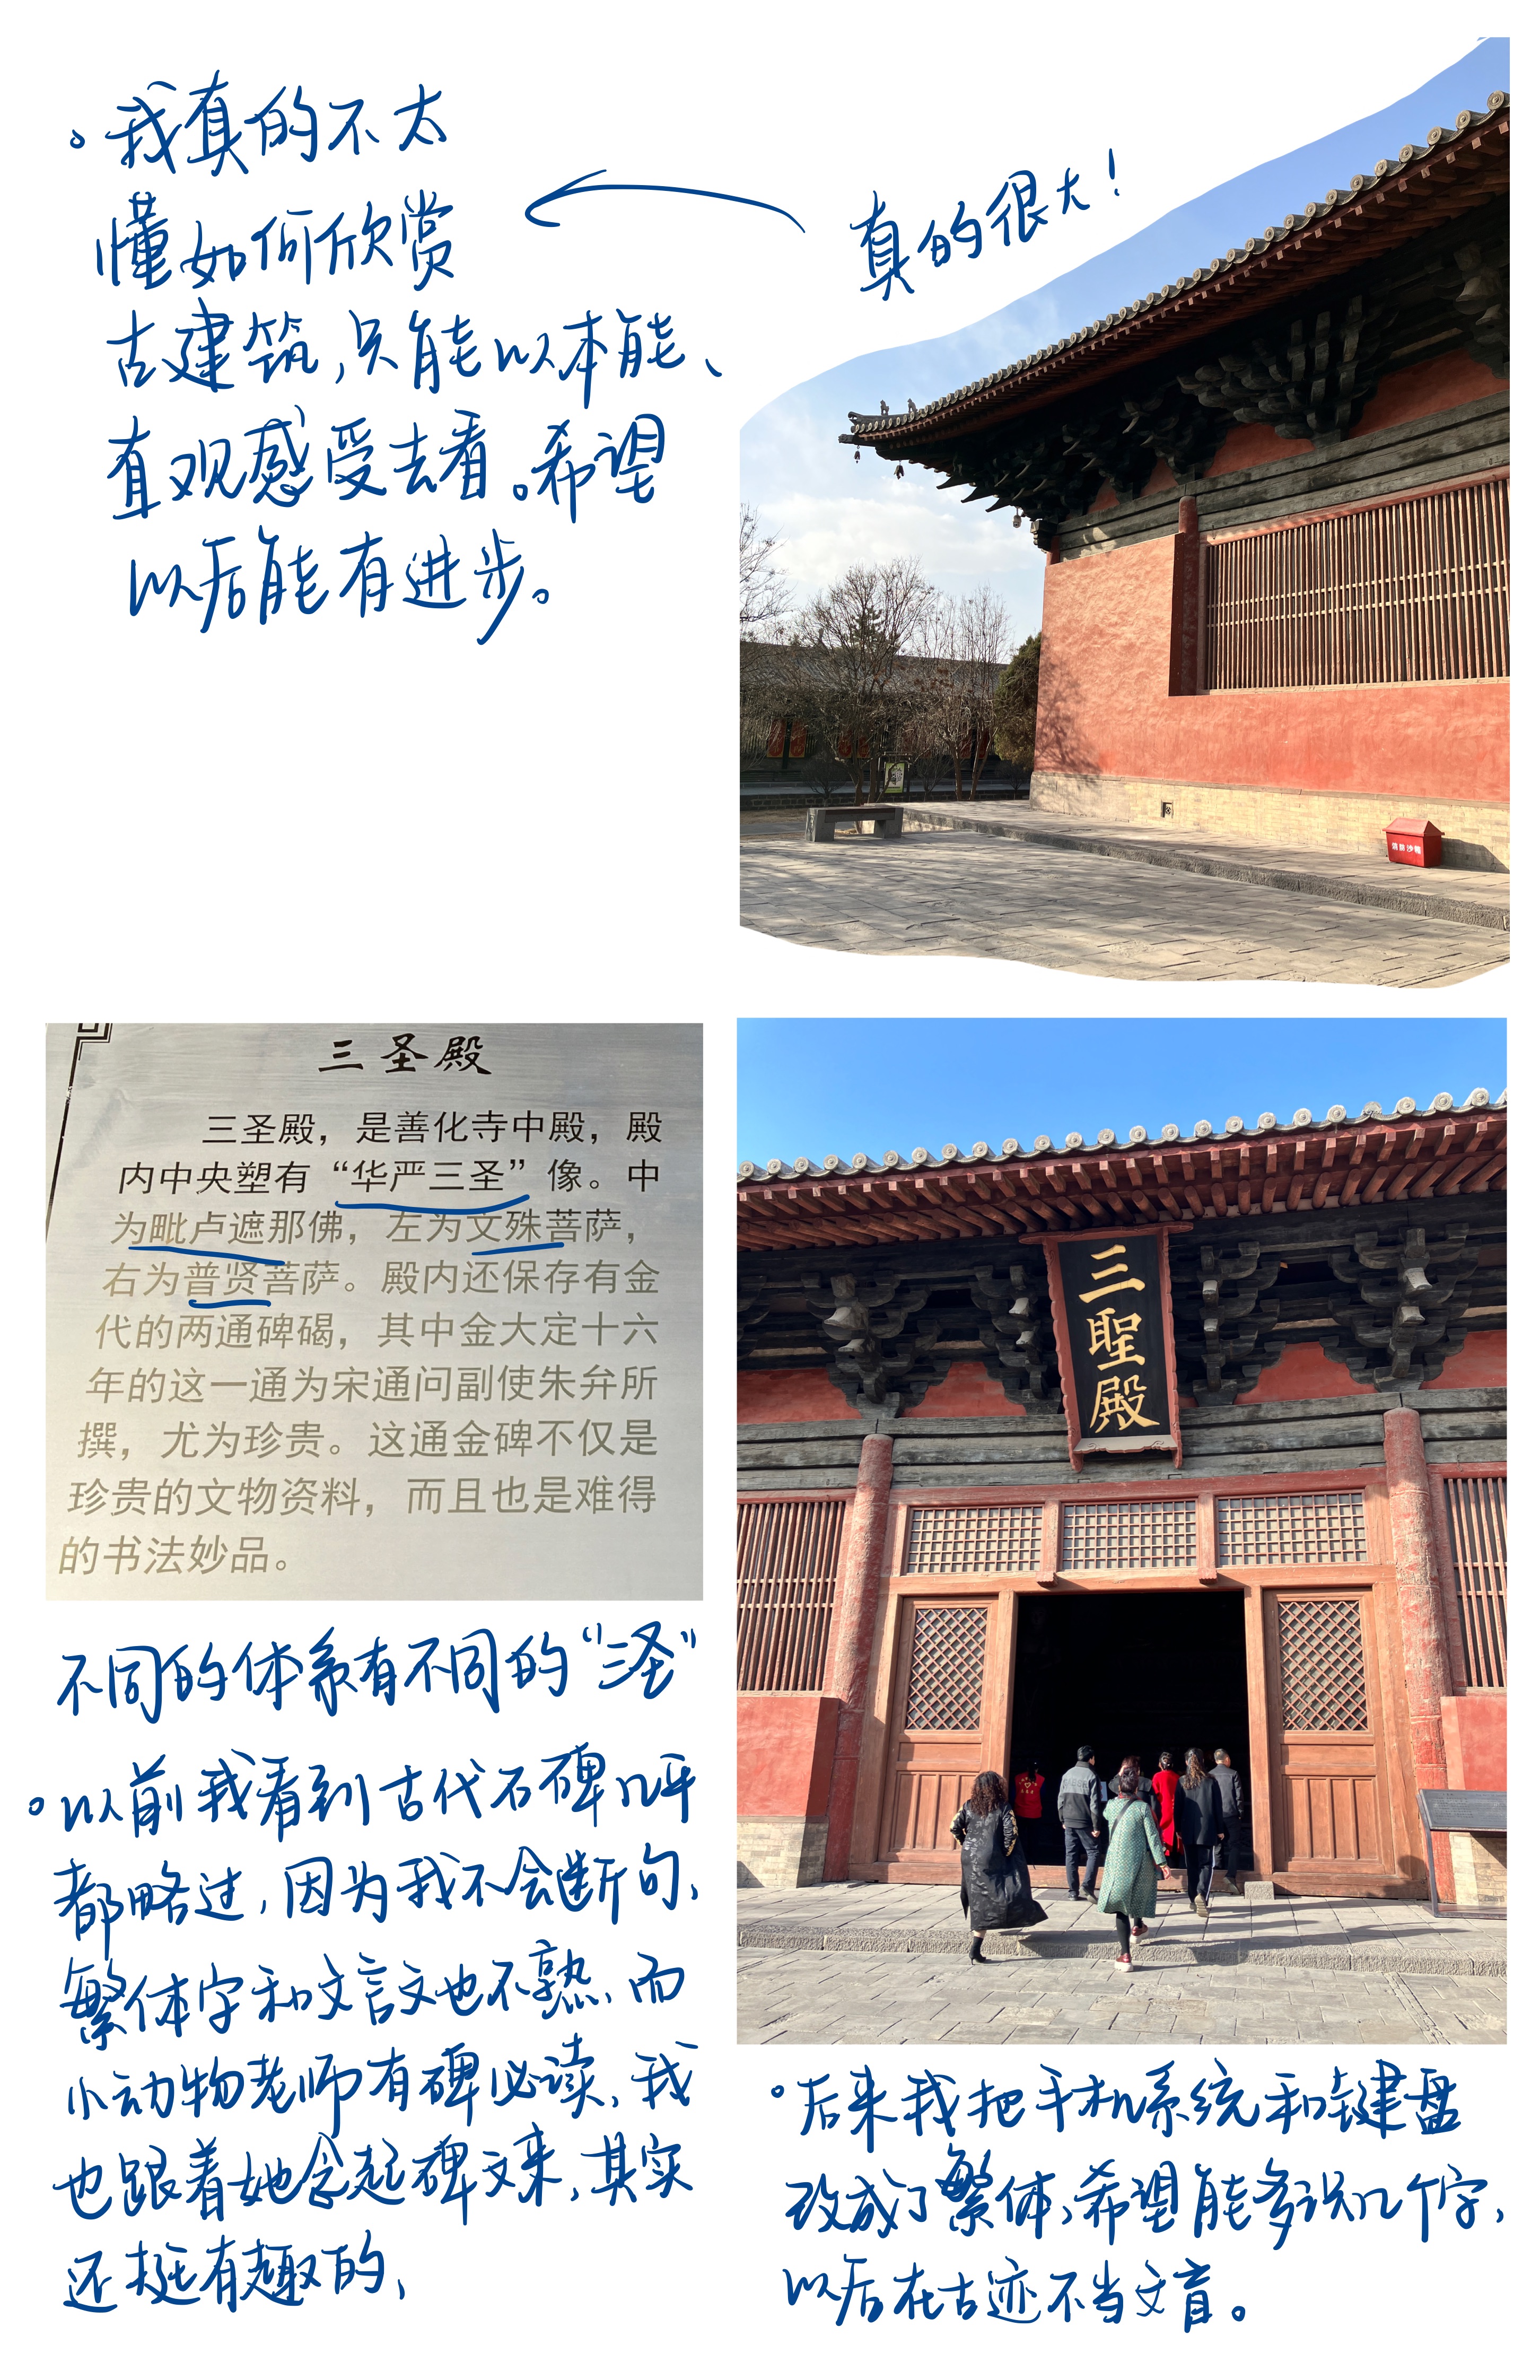 。我真的不太
懂如何欣赏
古建筑,只能以本能、
直观感受去看。希望
以后能有进步。
真的很大!
消防沙箱
三圣殿
三圣殿，是善化寺中殿，殿
内中央塑有“华严三圣”像。中
为毗卢遮那佛，左为文殊菩萨，
右为普贤菩萨。殿内还保存有金
代的两通碑碣，其中金大定十六
年的这一通为宋通问副使朱弁所
撰，尤为珍贵。这通金碑不仅是
珍贵的文物资料，而且也是难得
的书法妙品。
三聖殿
不同的体系有不同的“三圣”
。以前我看到古代石碑几乎
都略过,因为我不会断句,
繁体字和文言文也不熟,而
小动物老师有碑必读,我
也跟着她念起碑文来,其实
还挺有趣的,
。后来我把手机系统和键盘
改成了繁体,希望能多识几个字,
以后在古迹不当文盲。